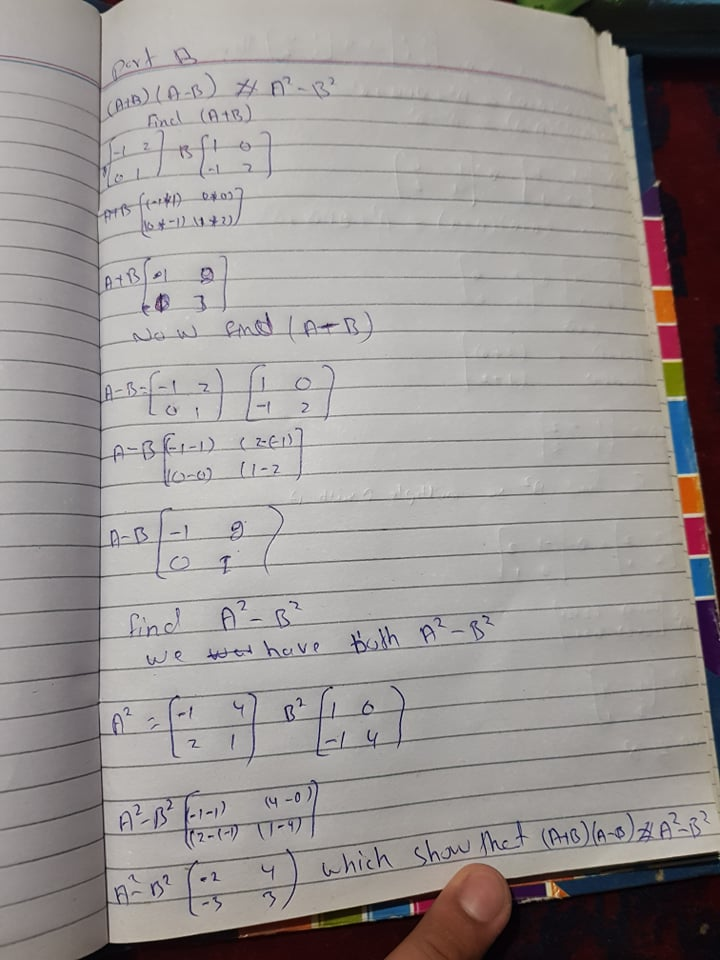 Part B
(A+B) (A-B) ≠ A² - B²
Find (A+B)
[-1 2] B [1 0]
[0 1] [-1 2]
A+B [(-1+1) 0+0)]
[(0+-1) (1+2)]
A+B [-1 ]
[ 3]
Now find (A-B)
A-B = [-1 2] [1 0]
[0 1] [-1 2]
A-B [(-1-1) (2-(-1)]
[(0-0) (1-2]
A-B [-1 ]
[0 ]
find A² - B²
we have both A² - B²
A² = [-1 4] B² [1 0]
[2 1] [-1 4]
A²-B² [(-1-1) (4-0)]
[(2-(-1) (1-4)]
A²-B² [-2 4] which show that (A+B)(A-B) ≠ A²-B²
[-3 3]